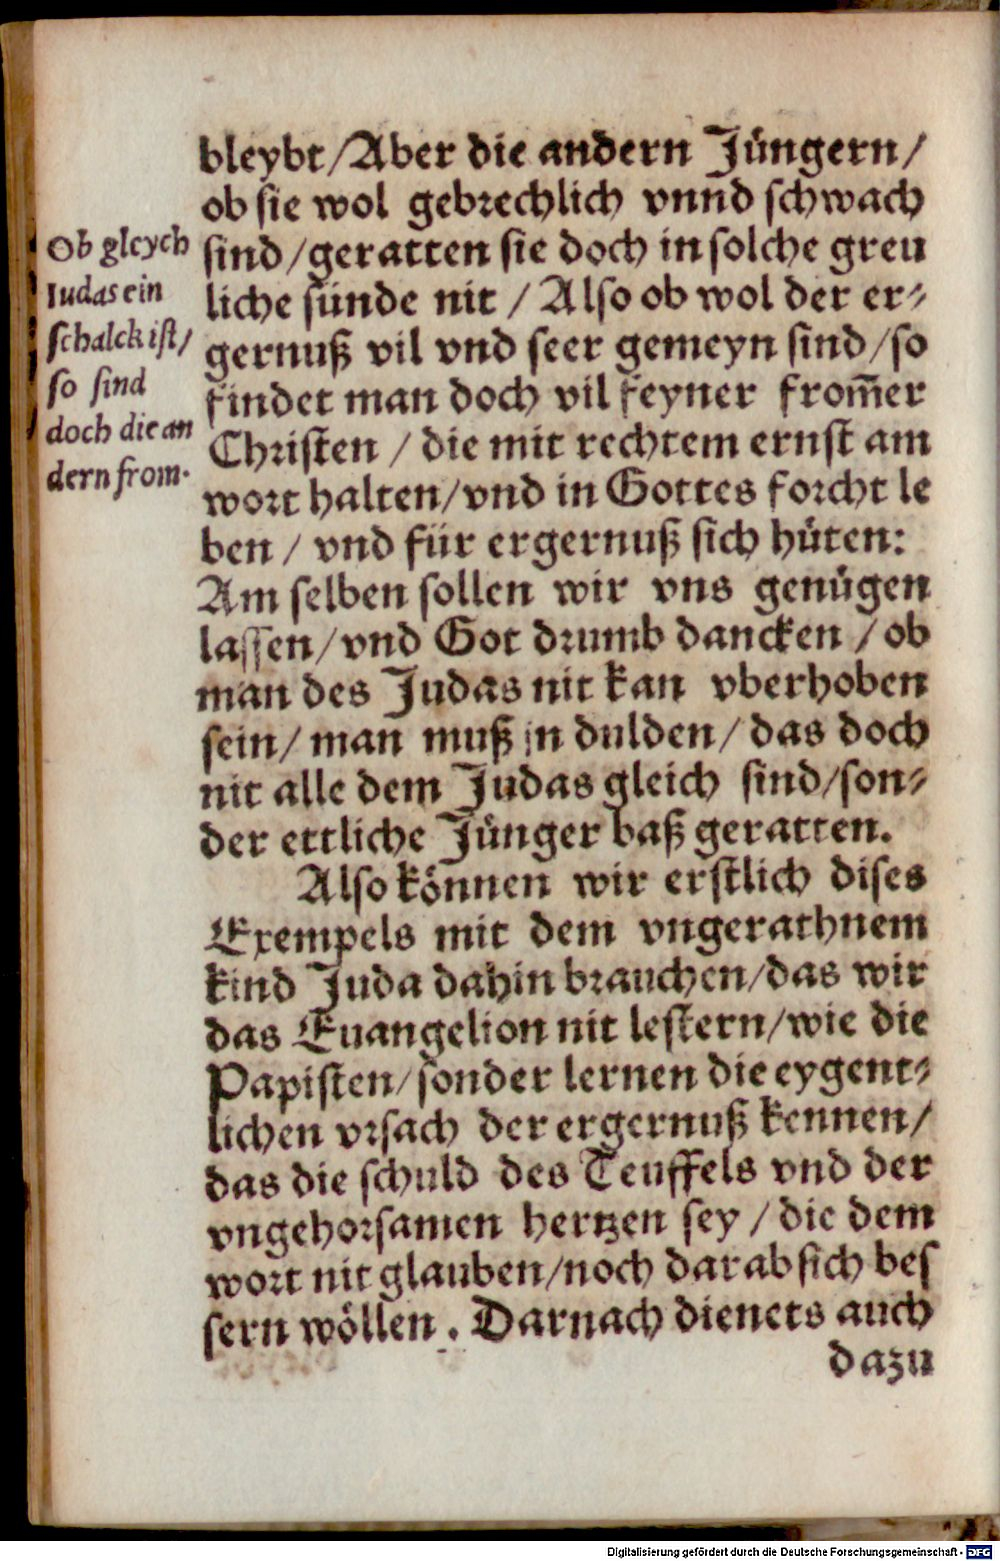 bleybt/Aber die andern Jüngern/
ob sie wol gebrechlich vnnd schwach
sind/geratten sie doch in solche greu
liche sünde nit / Also ob wol der er-
gernuß vil vnd seer gemeyn sind/so
findet man doch vil feyner from̃er
Christen / die mit rechtem ernst am
wort halten/vnd in Gottes forcht le
ben / vnd für ergernuß sich hüten:
Am selben sollen wir vns genügen
lassen/vnd Got drumb dancken / ob
man des Judas nit kan vberhoben
sein/ man muß jn dulden/ das doch
nit alle dem Judas gleich sind/son-
der ettliche Jünger baß geratten.
Also können wir erstlich dises
Exempels mit dem vngerathnem
kind Juda dahin brauchen/das wir
das Euangelion nit lestern/wie die
Papisten/sonder lernen die eygent-
lichen vrsach der ergernuß kennen/
das die schuld des Teuffels vnd der
vngehorsamen hertzen sey / die dem
wort nit glauben/noch darab sich bes
sern wöllen. Darnach dienets auch
dazu
Ob gleych
Iudas ein
schalck ist/
so sind
doch die an
dern from.
Digitalisierung gefördert durch die Deutsche Forschungsgemeinschaft - DFG